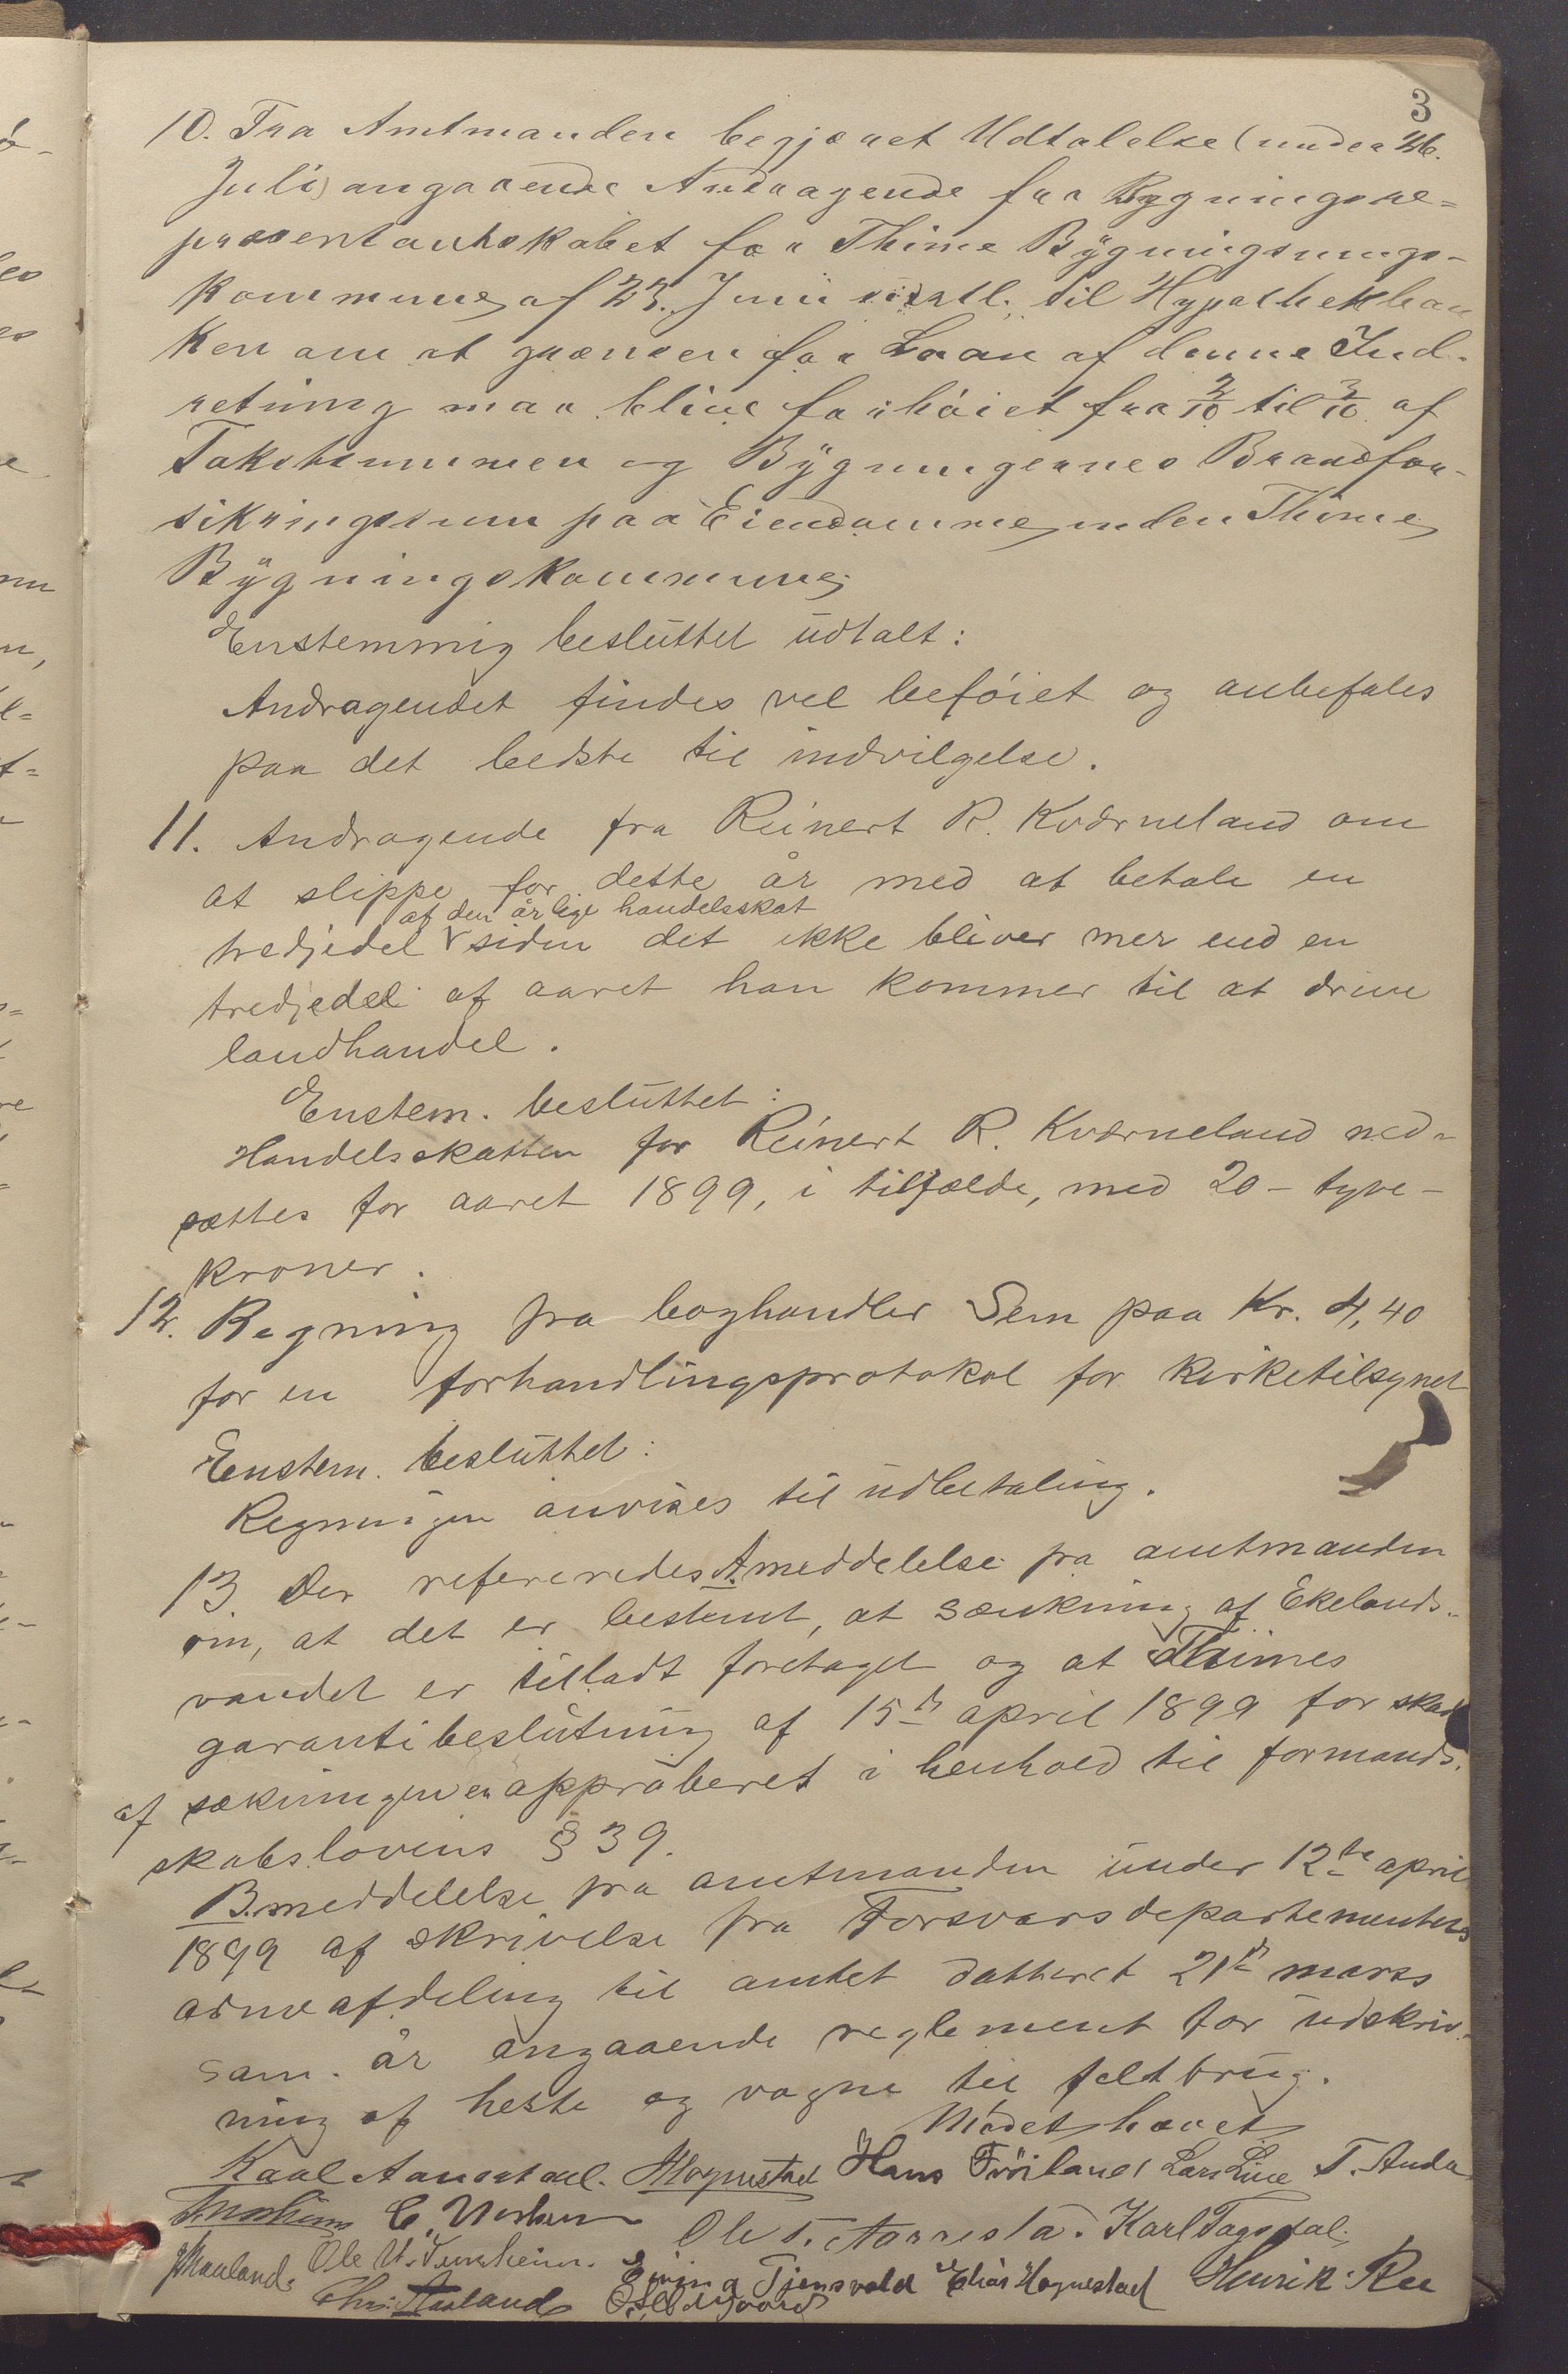 3
10. Fra Amtmanden begjæret Udtalelse (under
Juli) angaaende Andragende fra Bygningsre=
præsentantskabet for Thime Bygnings-
kommune af 23. Juni sidstl. til Hypothekban
ken om at grænsen for Laan af denne Ind-
retning maa blive forhöiet fra 2/10 til 3/10 af
Takstsummen og Bygningernes Brandfor-
sikringssum paa Eiendomme inden Thime
Bygningskommune
Enstemmig besluttet udtalt:
Andragendet findes vel beföiet og anbefales
paa det bedste til indvilgelse.
11. Andragende fra Reinert R. Kværneland om
at slippe for dette år med at betale en
af den årlige handelsskat
tredjedel siden det ikke bliver mer end en
tredjedel af aaret han kommer til at drive
landhandel.
Enstem. besluttet:
Handelsskatten for Reinert R. Kværneland ned-
sættes for aaret 1899, i tilfælde, med 20 - tyve -
kroner.
12. Regning fra boghandler Sem paa Kr. 4,40
for en forhandlingsprotokol for kirketilsynet
Enstem. besluttet:
Regningen anvises til udbetaling.
13. Der refereredes A. meddelelse fra amtmanden
om, at det er bestemt, at sænkning af Ekelands-
vandet er tilladt foretaget og at Thimes
garantibeslutning af 15de april 1899 for skade
af sækningen er approberet i henhold til formands-
skabslovens § 39.
B. meddelelse fra amtmanden under 12te april
1899 af skrivelse fra Forsvarsdepartementets
armeafdeling til amtet datteret 21de mars
sam. år angaaende reglement for udskriv-
ning af heste og vogne til feltbrug.
Mödet hævet
Kaal Aanestad. Hognestad Hans Fröiland Lars Line T. Anda
Ole T. Aarrestad. Karl Tagsdal.
Maaland. Ole U. Tunheim. Eivind Tjensvold Elias Hognestad Henrik Ree
Chr. Aasland